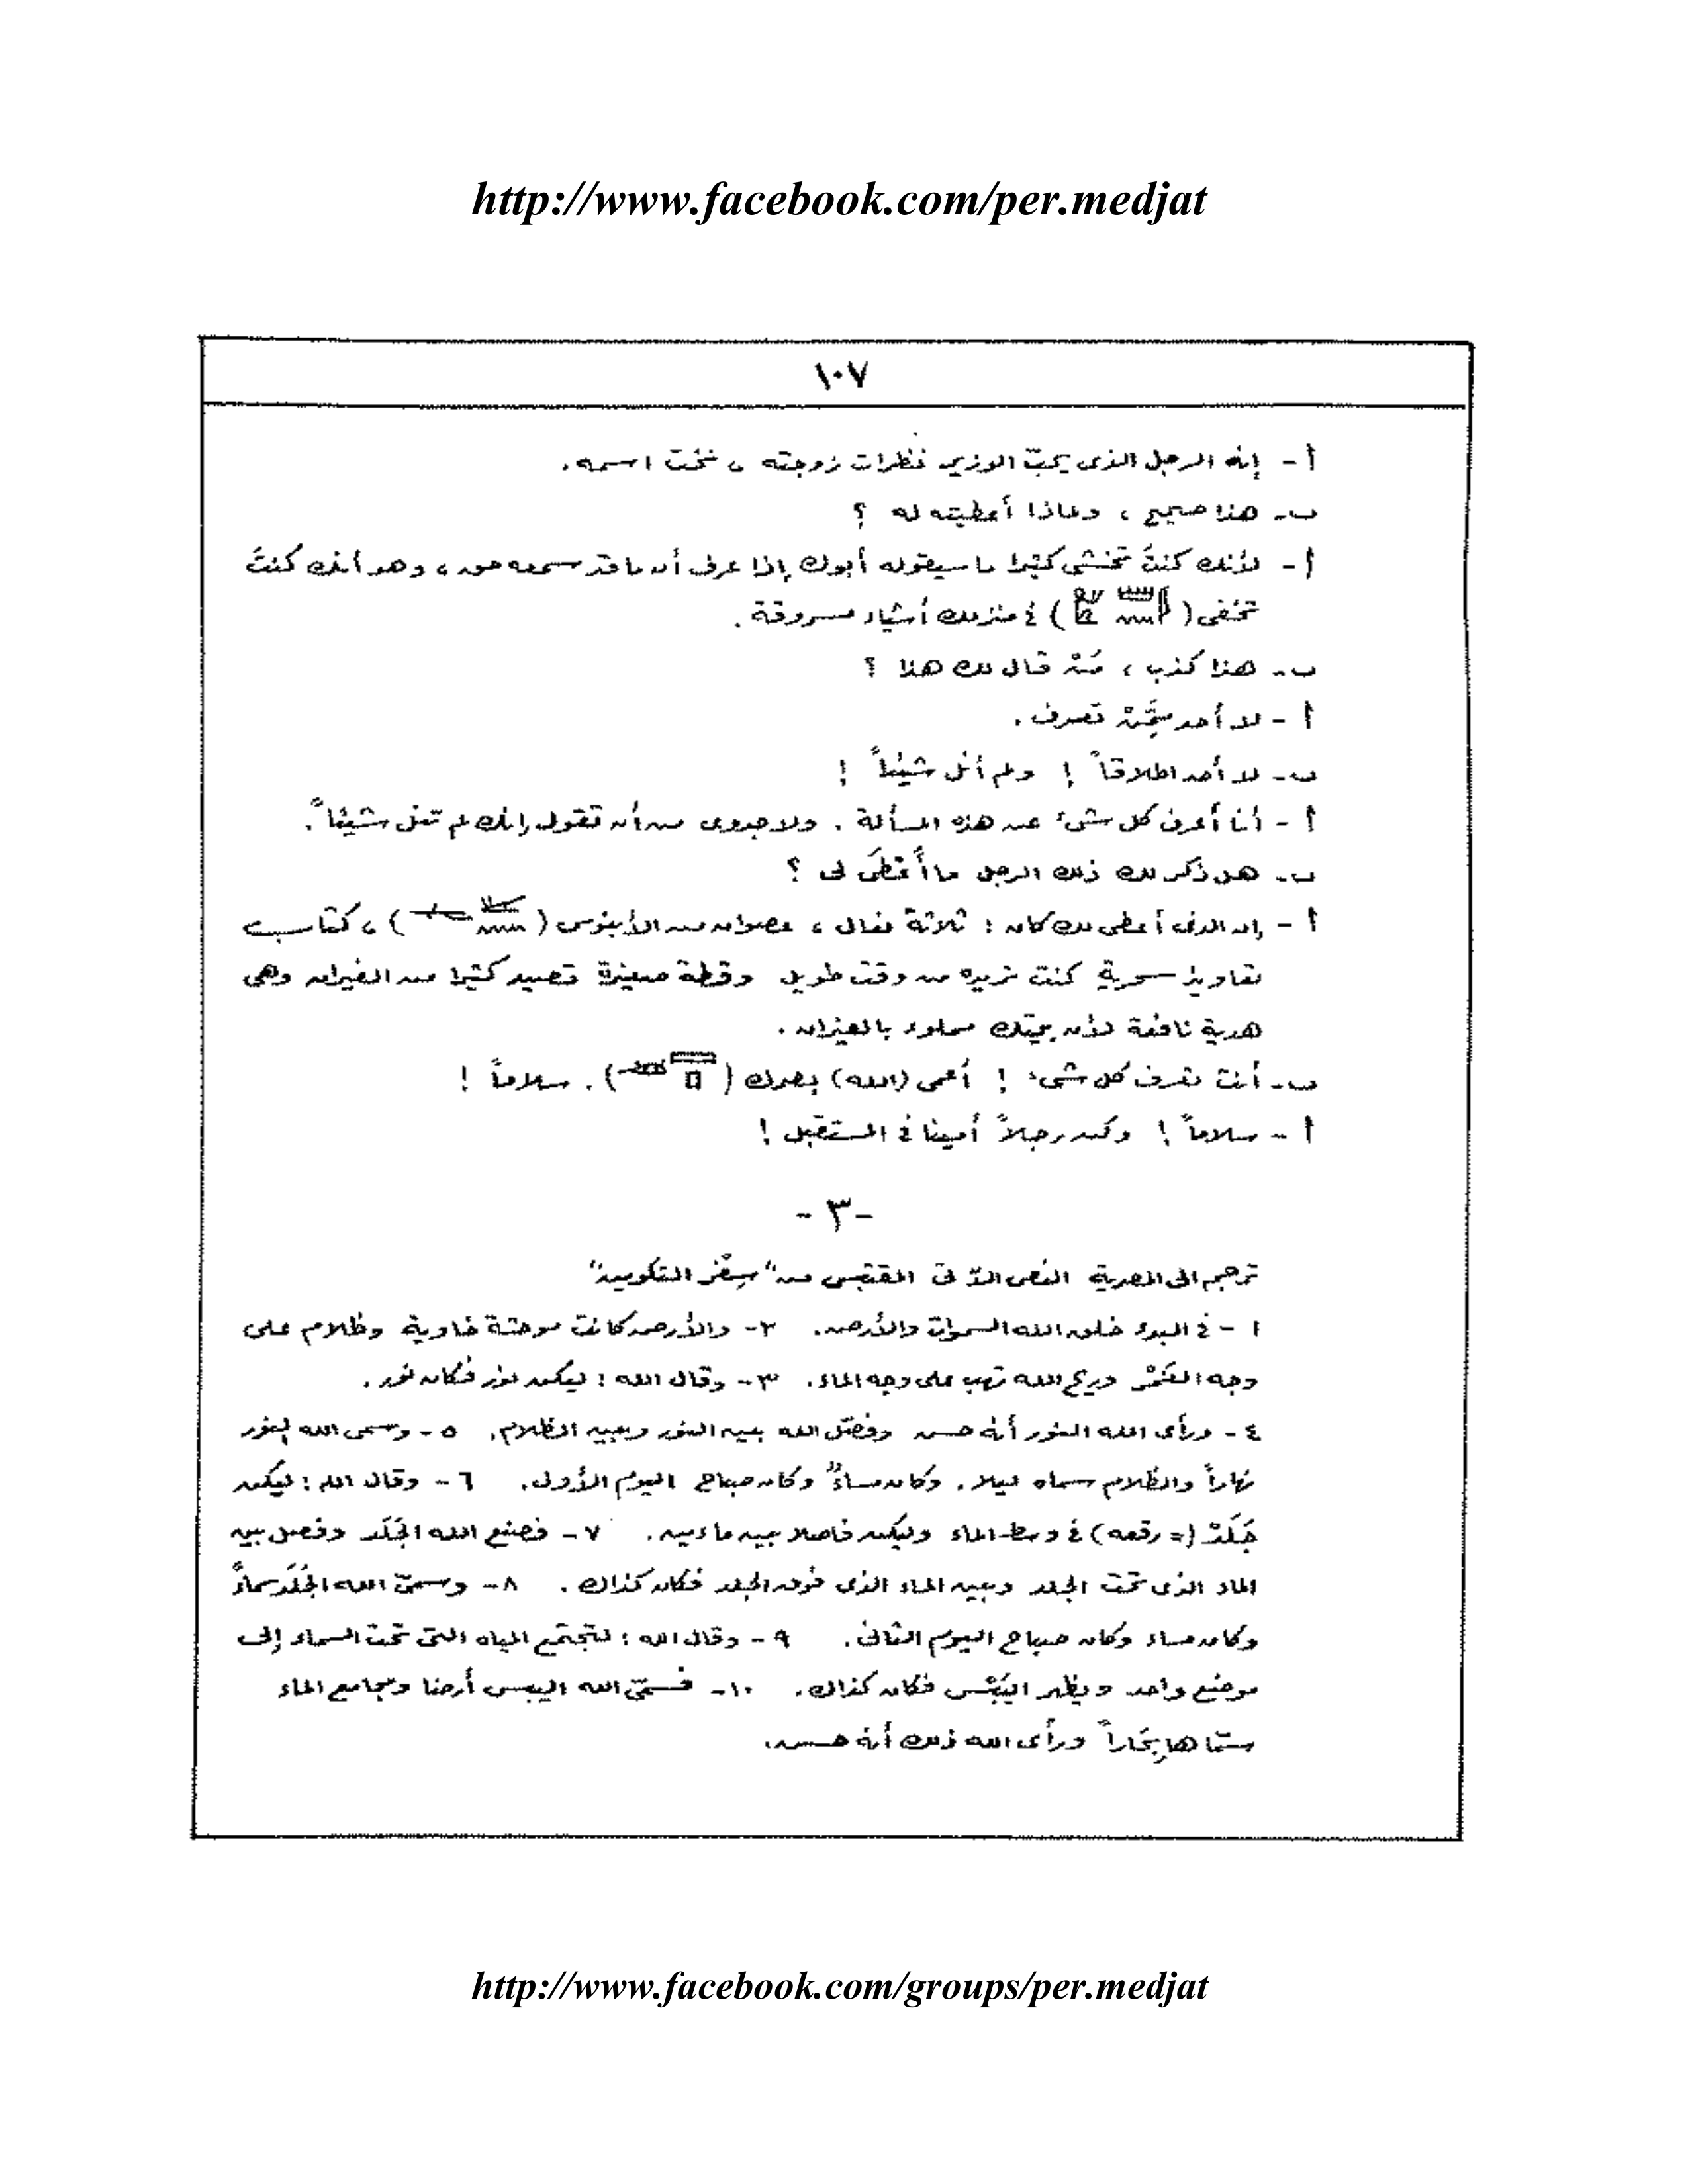 http://www.facebook.com/per.medjat
١٠٧
أ - إنه الرجل الذى يحبّ الوزير نظرات زوجته ، نحت اسمه.
ب - هذا صحيح ، وماذا أعطيته له ؟
أ - لأنك كنتَ تخشى كثيرا ما سيقوله أبوك إذا عرف أن ما قد سمعه حق ، وهو أنك كنتَ
تخفى ( ) فى منزلك أشياء مسروقة .
ب - هذا كذب ، مَنْ قال لك هذا ؟
أ - لا أحد ممَّنْ تعرف .
ب - لا أحد اطلاقاً ! ولم أقل شيئاً !
أ - أنا أعرف كل شئ عن هذه المسألة . ولا جدوى من أن تقول إنك لم تقل شيئاً .
ب - هل ذكر لك ذلك الرجل ما أَعْطَى لى ؟
أ - إن الذى أعطى لك كان : ثلاثة نعال ، عصوان من الأبنوس ( ) ، كتاب
تعاويذ سحرية كنت تريده من وقت طويل وقطة صغيرة تصيد كثيرا من الفيران وهى
هدية نافعة لأن بيتك مملوء بالفيران .
ب - أنت تعرف كل شئ ! أعمى (الله) بصرك ( ) . سلاماً !
أ - سلاماً ! وكن رجلاً أمينا فى المستقبل !
- ٣ -
ترجم الى المصرية النص الآتى المقتبس من "سِفْر التكوين"
١ - فى البدء خلق الله السموات والأرض. ٢ - والأرض كانت موحشة خاوية وظلام على
وجه الغَمْر وريح الله تهب على وجه الماء. ٣ - وقال الله : ليكن نور فكان نور .
٤ - ورأى الله النور أنه حسن وفصل الله بين النور وبين الظلام. ٥ - وسمى الله النور
نهاراً والظلام سماه ليلا . وكان مساءٌ وكان صباح اليوم الأول. ٦ - وقال الله : ليكن
جَلَدْ (= رقعه) فى وسط الماء وليكن فاصلا بين ماءين. ٧ - فصنع الله الجَلَد وفصل بين
الماء الذى تحت الجلد وبين الماء الذى فوق الجلد فكان كذلك . ٨ - وسمىّ الله الجَلَد سماءً
وكان مساء وكان صباح اليوم الثانى. ٩ - وقال الله : لتجتمع المياه التى تحت السماء إلى
موضع واحد ويظهر اليَبْس فكان كذلك . ١٠ - فسمىّ الله اليبس أرضا ومجامع الماء
سمّاها بِحَاراً ورأى الله ذلك أنه حسن.
http://www.facebook.com/groups/per.medjat